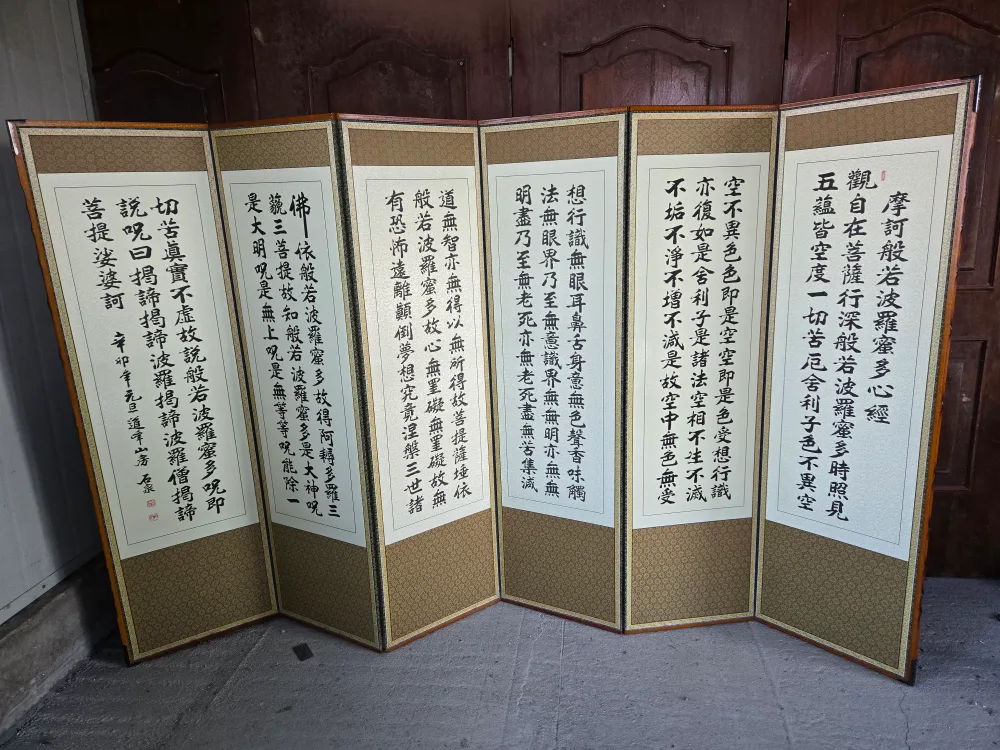 摩訶般若波羅蜜多心經
觀自在菩薩行深般若波羅蜜多時照見
五蘊皆空度一切苦厄舍利子色不異空
空不異色色即是空空即是色受想行識
亦復如是舍利子是諸法空相不生不滅
不垢不淨不增不減是故空中無色無受
想行識無眼耳鼻舌身意無色聲香味觸
法無眼界乃至無意識界無無明亦無無
明盡乃至無老死亦無老死盡無苦集滅
道無智亦無得以無所得故菩提薩埵依
般若波羅蜜多故心無罣礙無罣礙故無
有恐怖遠離顚倒夢想究竟涅槃三世諸
佛依般若波羅蜜多故得阿耨多羅三
藐三菩提故知般若波羅蜜多是大神呪
是大明呪是無上呪是無等等呪能除一
切苦眞實不虛故說般若波羅蜜多呪即
說呪曰揭諦揭諦波羅揭諦波羅僧揭諦
菩提娑婆訶
辛卯年元旦道峰山房 石泉